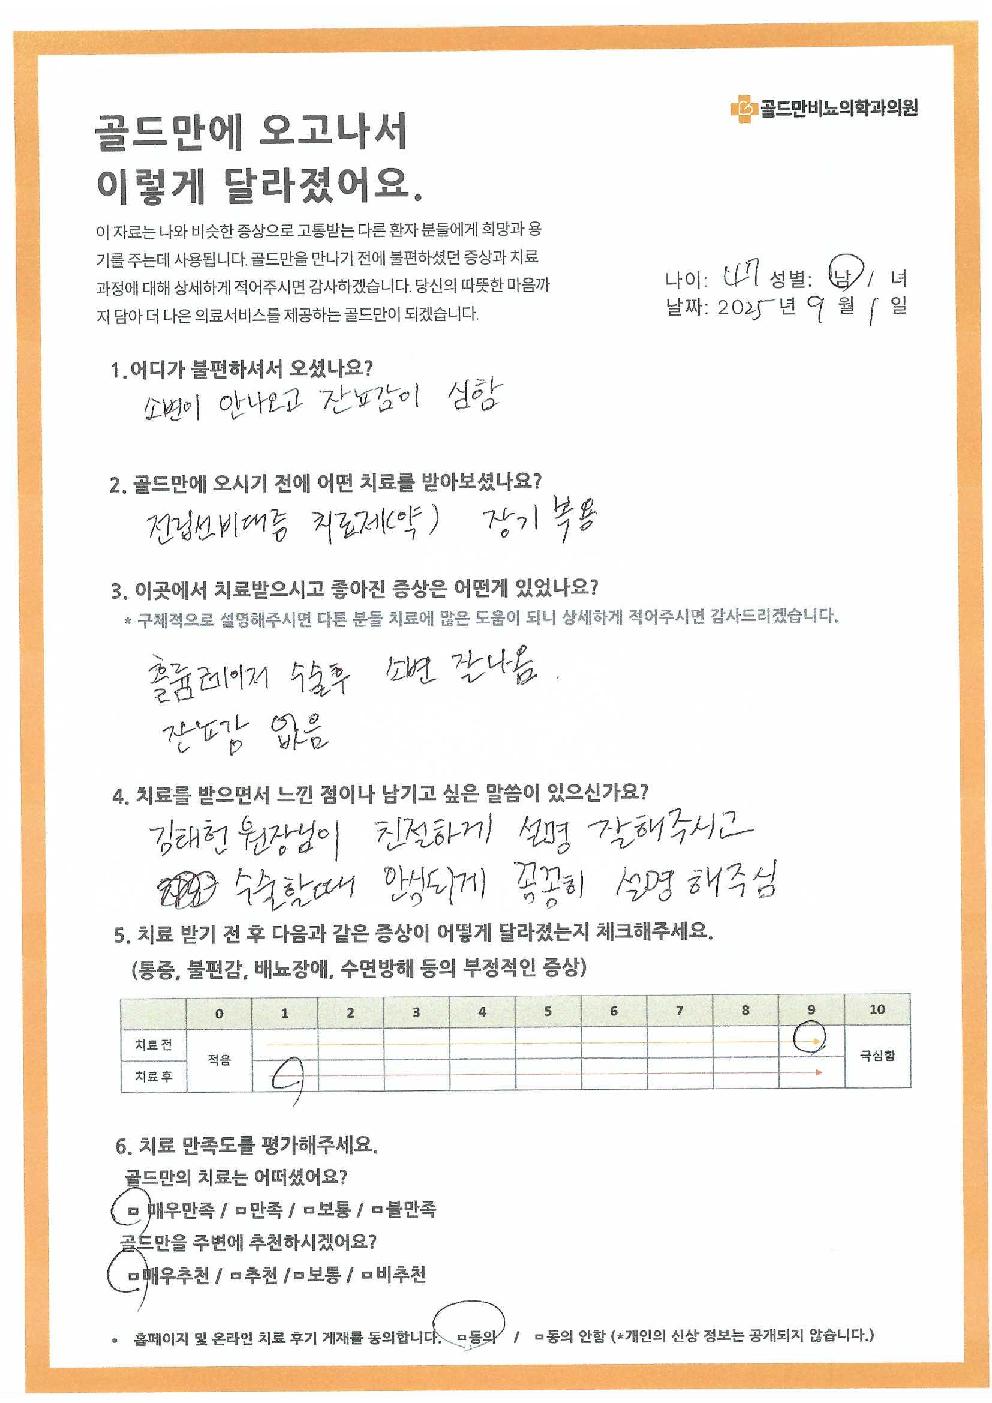 골드만비뇨의학과의원
골드만에 오고나서
이렇게 달라졌어요.
이 자료는 나와 비슷한 증상으로 고통받는 다른 환자 분들에게 희망과 용
기를 주는데 사용됩니다. 골드만을 만나기 전에 불편하셨던 증상과 치료
과정에 대해 상세하게 적어주시면 감사하겠습니다. 당신의 따뜻한 마음까
지 담아 더 나은 의료서비스를 제공하는 골드만이 되겠습니다.
나이: 47 성별: 남 / 녀
날짜: 2025년 9월 1일
1.어디가 불편하셔서 오셨나요?
소변이 안나오고 잔뇨감이 심함
2. 골드만에 오시기 전에 어떤 치료를 받아보셨나요?
전립선비대증 치료제(약) 장기 복용
3. 이곳에서 치료받으시고 좋아진 증상은 어떤게 있었나요?
* 구체적으로 설명해주시면 다른 분들 치료에 많은 도움이 되니 상세하게 적어주시면 감사드리겠습니다.
홀뮴레이저 수술후 소변 잘나옴.
잔뇨감 없음
4. 치료를 받으면서 느낀 점이나 남기고 싶은 말씀이 있으신가요?
김태헌 원장님이 친절하게 설명 잘해주시고
수술할때 안심되게 꼼꼼히 설명 해주심
5. 치료 받기 전 후 다음과 같은 증상이 어떻게 달라졌는지 체크해주세요.
(통증, 불편감, 배뇨장애, 수면방해 등의 부정적인 증상)
0 1 2 3 4 5 6 7 8 9 10
치료 전
적음
극심함
치료 후
6. 치료 만족도를 평가해주세요.
골드만의 치료는 어떠셨어요?
□ 매우만족 / □ 만족 / □ 보통 / □ 불만족
골드만을 주변에 추천하시겠어요?
□ 매우추천 / □ 추천 / □ 보통 / □ 비추천
• 홈페이지 및 온라인 치료 후기 게재를 동의합니다. □ 동의 / □ 동의 안함 (*개인의 신상 정보는 공개되지 않습니다.)